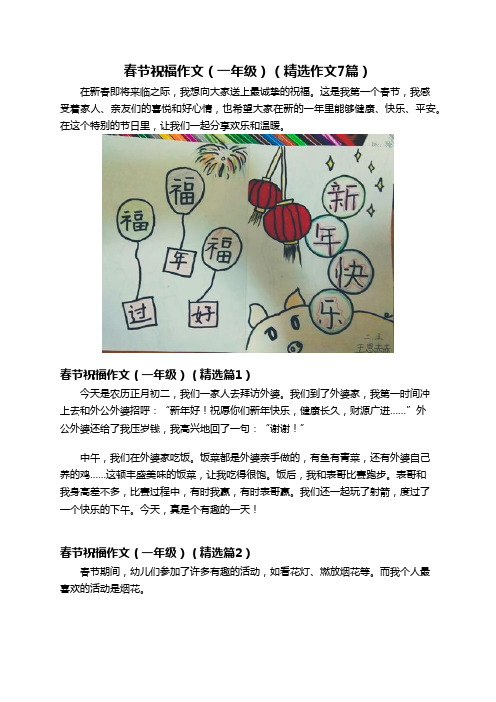 春节祝福作文（一年级）（精选作文7篇）
在新春即将来临之际，我想向大家送上最诚挚的祝福。这是我第一个春节，我感
受着家人、亲友们的喜悦和好心情，也希望大家在新的一年里能够健康、快乐、平安。
在这个特别的节日里，让我们一起分享欢乐和温暖。
福
福
福
年
过
好
新
年
快
乐
春节祝福作文（一年级）（精选篇1）
今天是农历正月初二，我们一家人去拜访外婆。我们到了外婆家，我第一时间冲
上去和外公外婆招呼：“新年好！祝愿你们新年快乐，健康长久，财源广进……”外
公外婆还给了我压岁钱，我高兴地回了一句：“谢谢！”
中午，我们在外婆家吃饭。饭菜都是外婆亲手做的，有鱼有青菜，还有外婆自己
养的鸡……这顿丰盛美味的饭菜，让我吃得很饱。饭后，我和表哥比赛跑步。表哥和
我身高差不多，比赛过程中，有时我赢，有时表哥赢。我们还一起玩了射箭，度过了
一个快乐的下午。今天，真是个有趣的一天！
春节祝福作文（一年级）（精选篇2）
春节期间，幼儿们参加了许多有趣的活动，如看花灯、燃放烟花等。而我个人最
喜欢的活动是烟花。